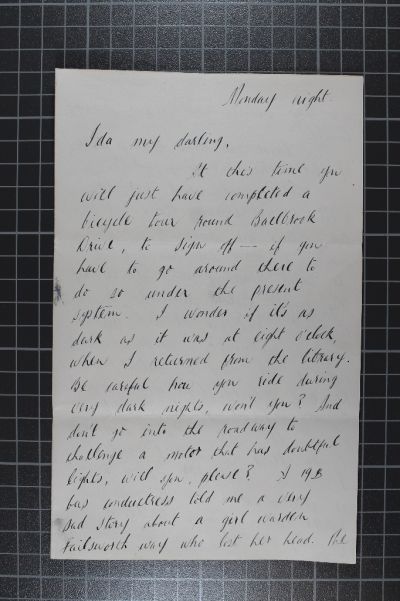 Monday night.
Ida my darling,
At this time you
will just have completed a
bicycle tour round Baelbrook
Drive, to sign off — if you
have to go around there to
do so under the present
system. I wonder if it's as
dark as it was at eight o'clock,
when I returned from the library.
Be careful how you ride during
very dark nights, won't you? And
don't go into the roadway to
challenge a motor that has doubtful
lights, will you, please? A 19B
bus conductress told me a very
sad story about a girl warden
Failsworth way who lost her head. She